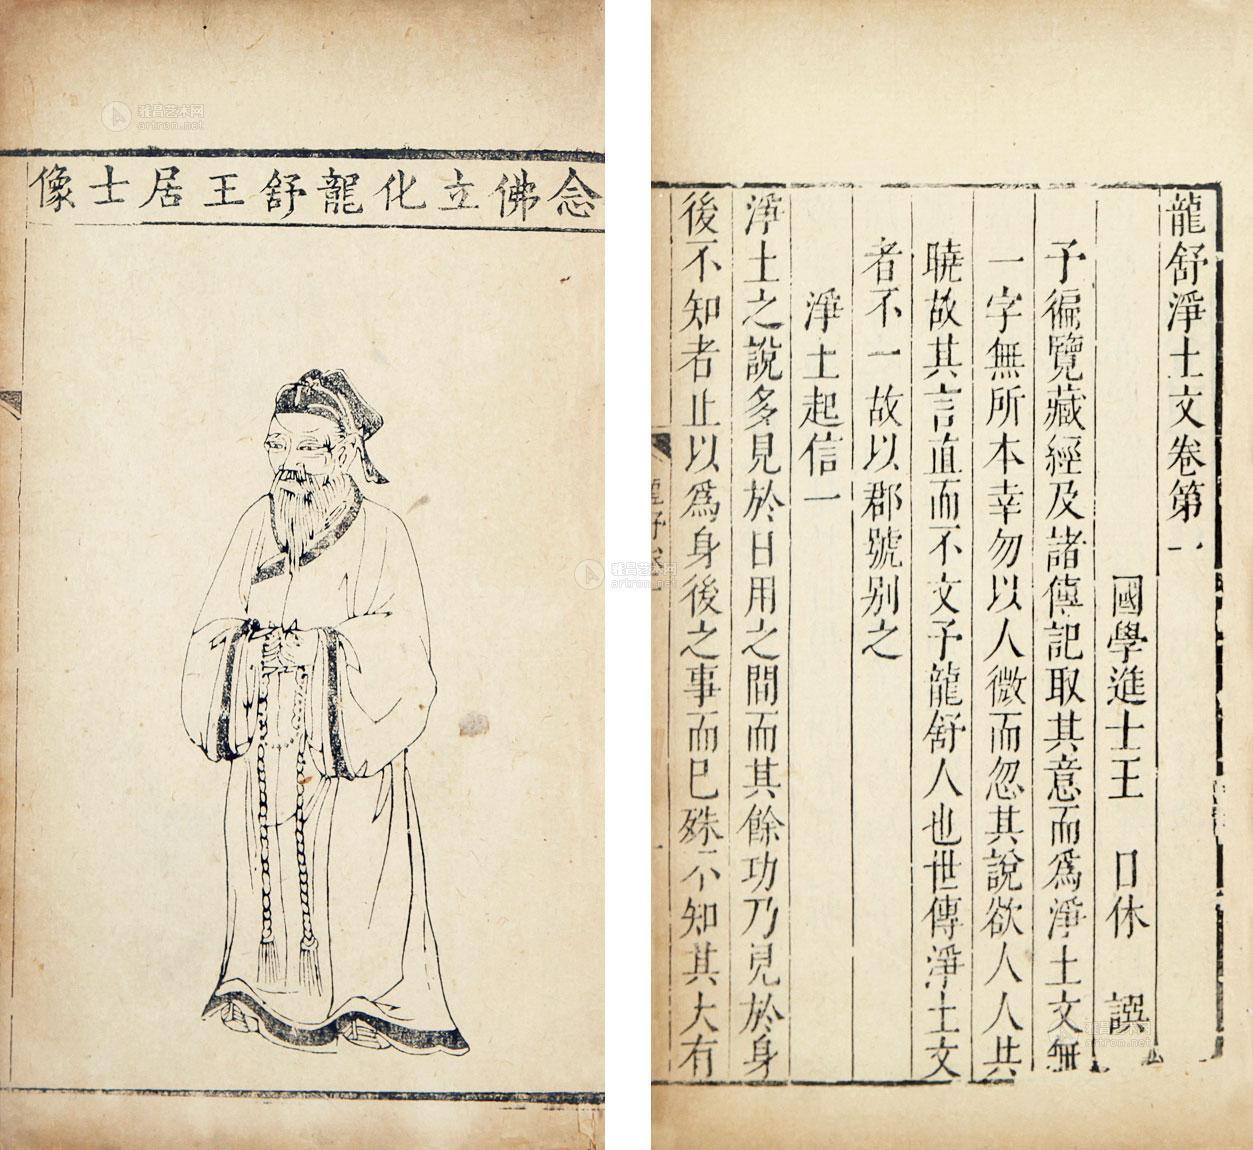 念佛立化龍舒王居士像
龍舒淨土文卷第一
國學進士王日休譔
予徧覽藏經及諸傳記取其意而爲淨土文無
一字無所本幸勿以人微而忽其說欲人人共
曉故其言直而不文予龍舒人也世傳淨土文
者不一故以郡號别之
淨土起信一
淨土之說多見於日用之間而其餘功乃見於身
後不知者止以爲身後之事而已殊不知其大有
雅昌艺术网
artron.net
雅昌艺术网
artron.net
雅昌艺术网
artron.net